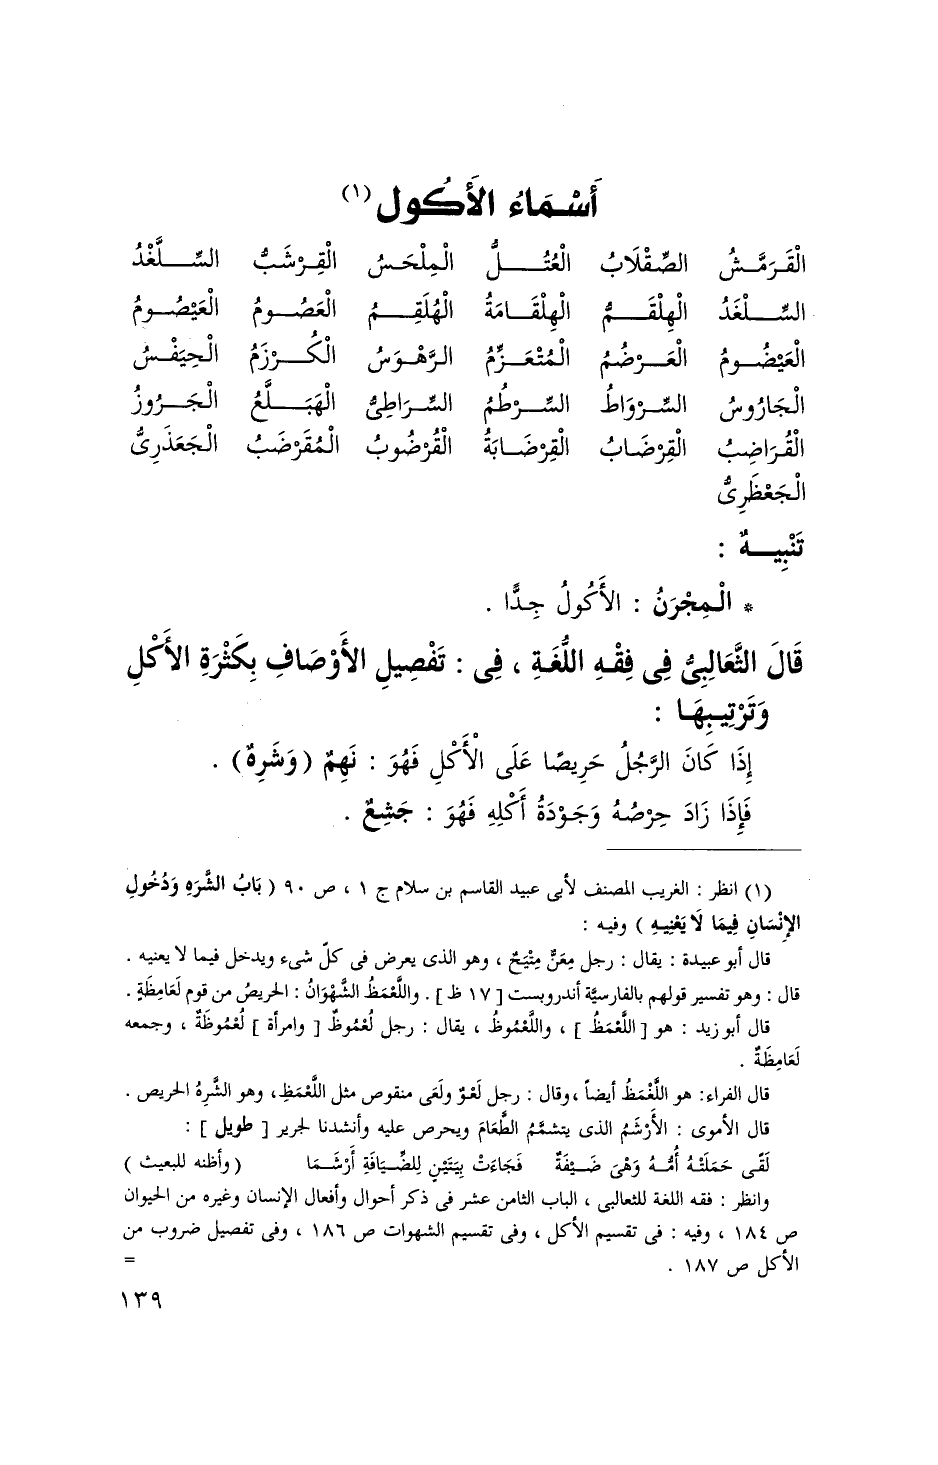 أَسْمَاءُ الأَكُولِ (١)
الْقَرَمَّشُ الصِّقْلَابُ الْعُتُلُّ الْمِلْحَسُ الْقِرْشَبُّ السِّلَّغْدُ
السِّلْغَدُ الْهِلْقَمُّ الْهِلْقَامَةُ الْهُلَقِمُ الْعَصُومُ الْعَيْصُومُ
الْعَيْضُومُ الْعَرْضُمُ الْمُتْعَزِّمُ الرَّهْوَسُ الْكُرْزَمُ الْحِيَفْسُ
الْجَارُوسُ السِّرْوَاطُ السِّرْطُمُ السِّرَاطِىُّ الْهَبَلَّعُ الْجَرُوزُ
الْقُرَاضِبُ الْقِرْضَابُ الْقِرْضَابَةُ الْقُرْضُوبُ الْمُقَرْضَبُ الْجَعَذَرِىُّ
الْجَعْظَرِىُّ
تَنْبِيهٌ :
* الْمِجْرَنُ : الأَكُولُ جِدًّا .
قَالَ الثَّعَالِبِىُّ فِى فِقْهِ اللُّغَةِ ، فِى : تَفْصِيلِ الأَوْصَافِ بِكَثْرَةِ الأَكْلِ
وَتَرْتِيبِهَا :
إِذَا كَانَ الرَّجُلُ حَرِيصًا عَلَى الْأَكْلِ فَهُوَ : نَهِمٌ (وَشَرِهٌ) .
فَإِذَا زَادَ حِرْصُهُ وَجَوْدَةُ أَكْلِهِ فَهُوَ : جَشِعٌ .
(١) انظر : الغريب المصنف لأبى عبيد القاسم بن سلام ج ١ ، ص ٩٠ ( بَابُ الشَّرَهِ وَدُخُولِ
الإِنْسَانِ فِيمَا لَا يَعْنِيهِ ) وفيه :
قال أبو عبيدة : يقال : رجل مِعَنٌّ مِتْيَحٌ ، وهو الذى يعرض فى كلّ شىء ويدخل فيما لا يعنيه .
قال : وهو تفسير قولهم بالفارسيّة أندروبست [ ١٧ ظ ] . واللَّعْمَظُ الشَّهْوَانُ : الحريصُ من قوم لَعَامِظَةٍ .
قال أبو زيد : هو [ اللَّعْمَظُ ] ، واللُّعْمُوظُ ، يقال : رجل لُعْمُوظٌ [ وامرأة ] لُعْمُوظَةٌ ، وجمعه
لَعَامِظَةٌ .
قال الفراء: هو اللَّعْمَظُ أيضاً ،وقال : رجل لَعْوٌ ولَعَى منقوص مثل اللَّعْمَظِ، وهو الشَّرِهُ الحريص .
قال الأموى : الأَرْشَمُ الذى يتشمَّمُ الطَّعَامَ ويحرص عليه وأنشدنا لجرير [ طويل ] :
لَقًى حَمَلَتْهُ أُمُّهُ وَهْىَ ضَيْفَةٌ فَجَاءَتْ بِيَتْنٍ لِلضِّيَافَةِ أَرْشَمَا (وأظنه للبعيث )
وانظر : فقه اللغة للثعالبى ، الباب الثامن عشر فى ذكر أحوال وأفعال الإنسان وغيره من الحيوان
ص ١٨٤ ، وفيه : فى تقسيم الأكل ، وفى تقسيم الشهوات ص ١٨٦ ، وفى تفصيل ضروب من
الأكل ص ١٨٧ . =
١٣٩